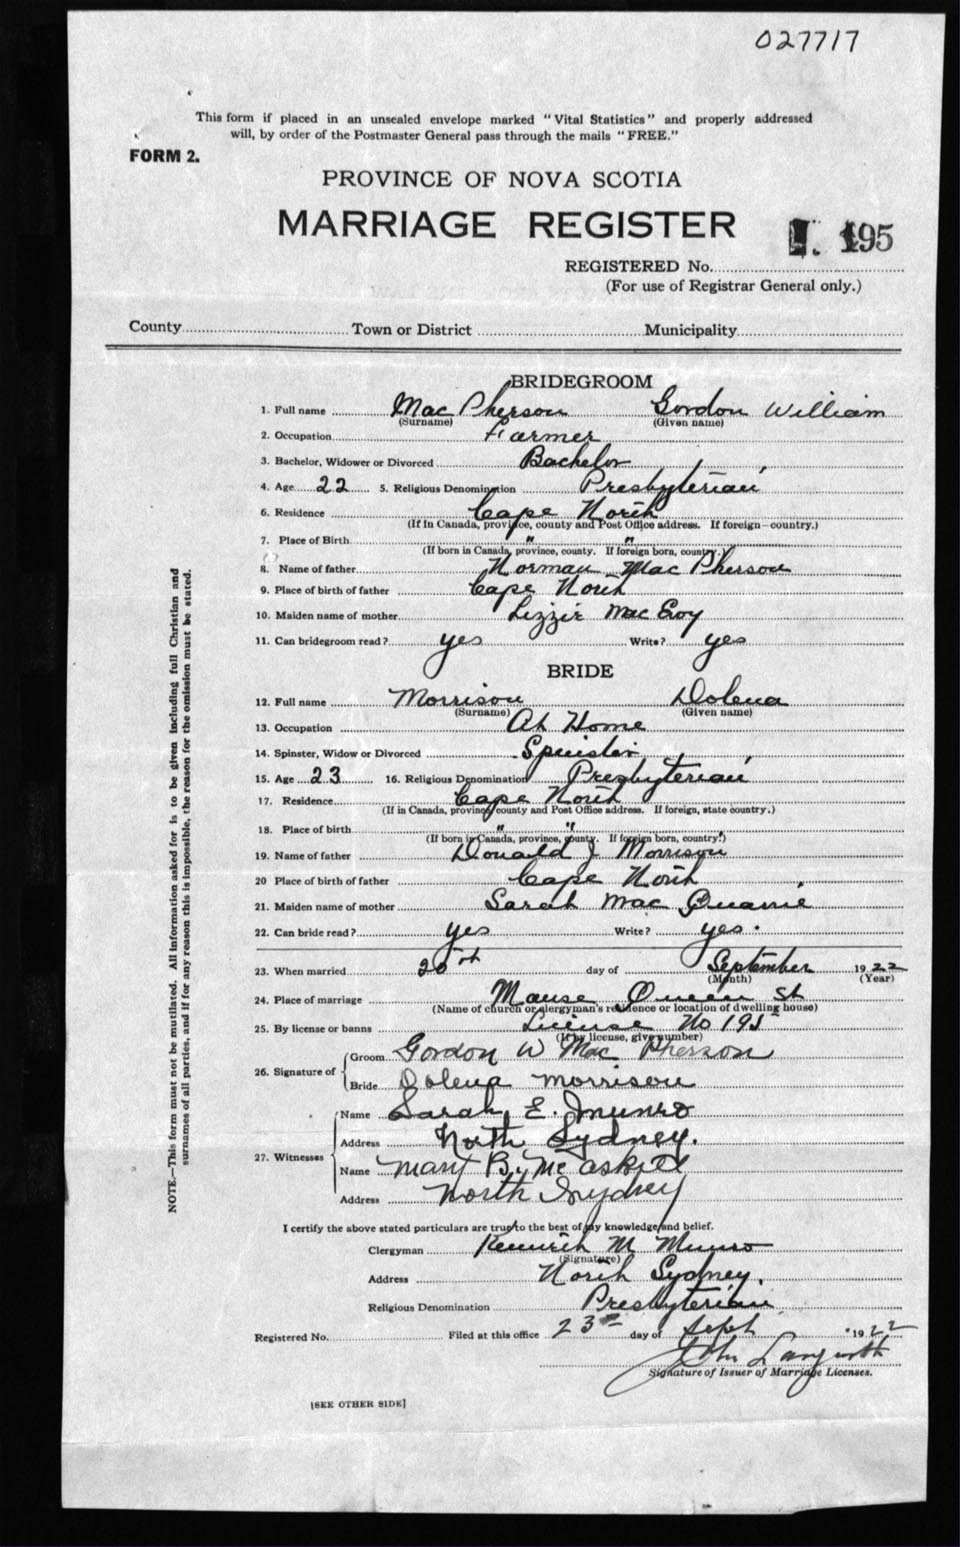 027717
This form if placed in an unsealed envelope marked "Vital Statistics" and properly addressed
will, by order of the Postmaster General pass through the mails "FREE."
FORM 2.
PROVINCE OF NOVA SCOTIA
MARRIAGE REGISTER
195
REGISTERED No.
(For use of Registrar General only.)
County Town or District Municipality
BRIDEGROOM
1. Full name MacPherson Gordon William
(Surname) (Given name)
2. Occupation Farmer
3. Bachelor, Widower or Divorced Bachelor
4. Age 22 5. Religious Denomination Presbyterian
6. Residence Cape North
(If in Canada, province, county and Post Office address. If foreign—country.)
7. Place of Birth " "
(If born in Canada, province, county. If foreign born, country.)
8. Name of father Norman MacPherson
9. Place of birth of father Cape North
10. Maiden name of mother Lizzie Mac Evoy
11. Can bridegroom read? yes Write? yes
BRIDE
12. Full name Morrison Dolena
(Surname) (Given name)
13. Occupation At Home
14. Spinster, Widow or Divorced Spinster
15. Age 23 16. Religious Denomination Presbyterian
17. Residence Cape North
(If in Canada, province, county and Post Office address. If foreign, state country.)
18. Place of birth " "
(If born in Canada, province, county. If foreign born, country.)
19. Name of father Donald J Morrison
20 Place of birth of father Cape North
21. Maiden name of mother Sarah Mac Quarrie
22. Can bride read? yes Write? yes.
23. When married 20th day of September 1922
(Month) (Year)
24. Place of marriage Manse Queen St
(Name of church or clergyman's residence or location of dwelling house)
25. By license or banns License No 195
(If by license, give number)
26. Signature of
Groom Gordon W MacPherson
Bride Dolena Morrison
27. Witnesses
Name Sarah E. Munro
Address North Sydney.
Name Mary B. McAskill
Address North Sydney
I certify the above stated particulars are true to the best of my knowledge and belief.
Clergyman Kenneth M Munro
(Signature)
Address North Sydney.
Religious Denomination Presbyterian
Registered No. Filed at this office 23rd day of Sept 1922
John Langwith
Signature of Issuer of Marriage Licenses.
[SEE OTHER SIDE]
NOTE.—This form must not be mutilated. All information asked for is to be given including full Christian and
surnames of all parties, and if for any reason this is impossible, the reason for the omission must be stated.